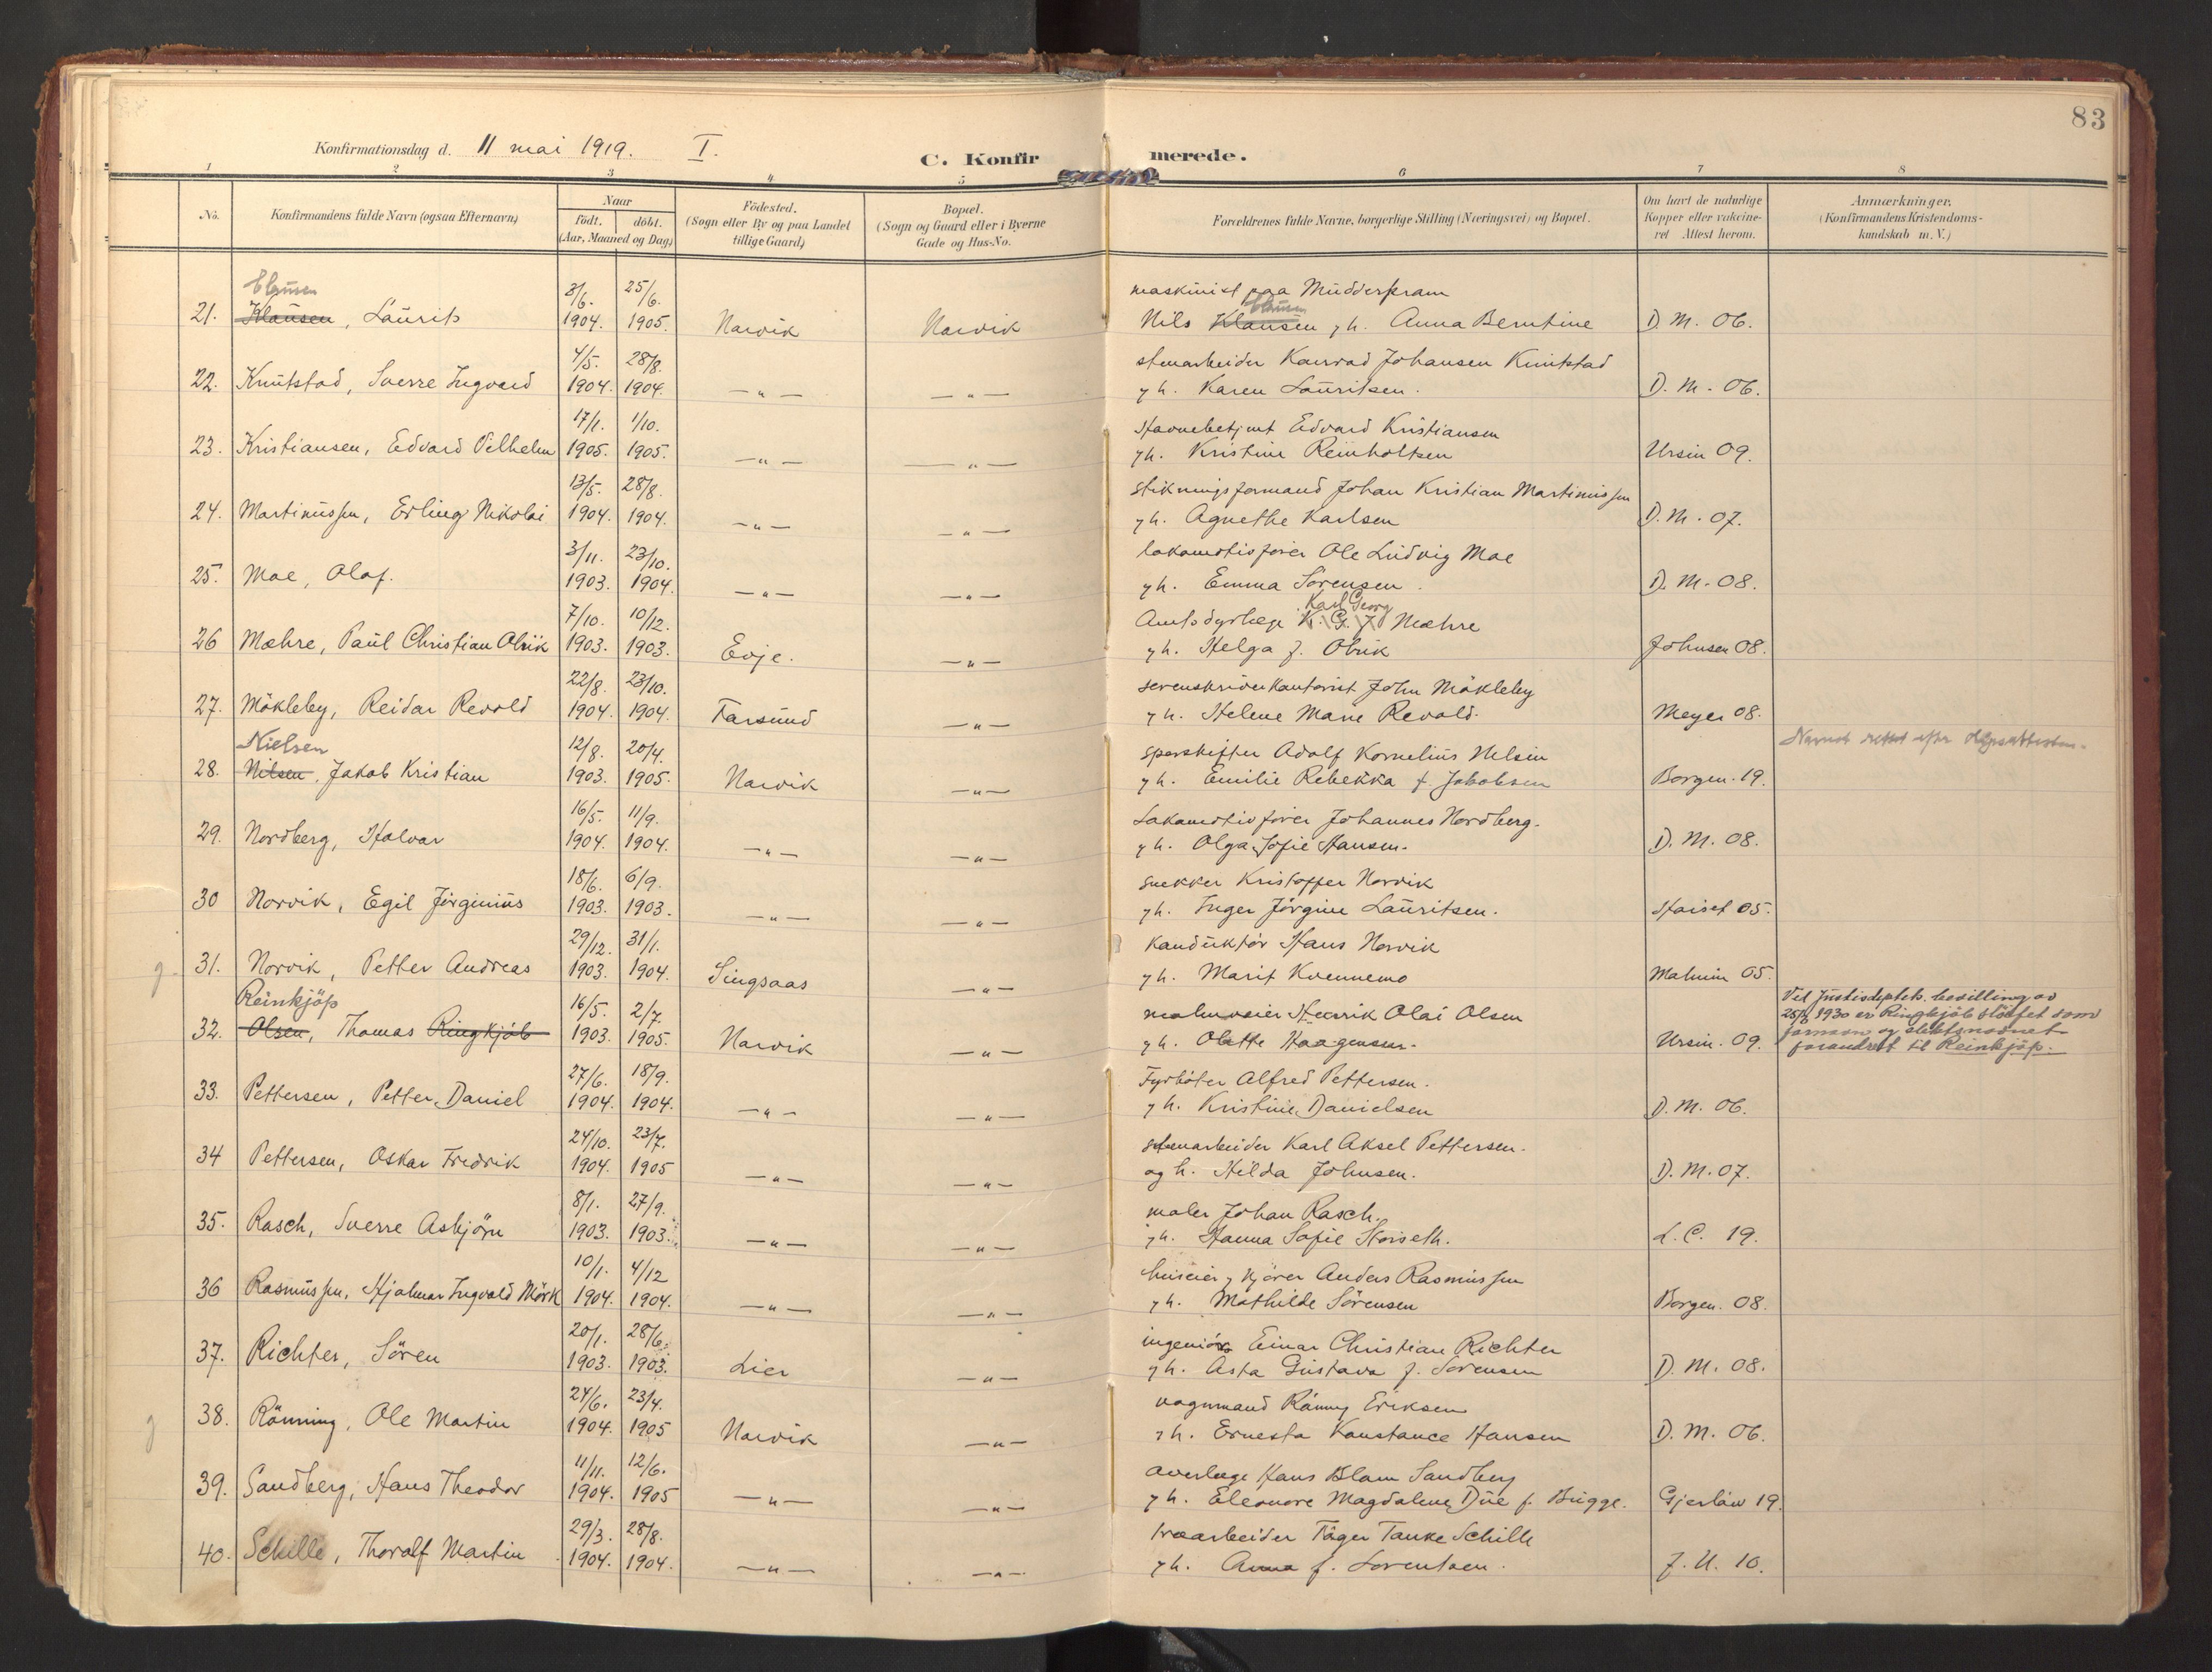 83
Konfirmationsdag d. 11 mai 1919. I.
C. Konfirmerede.
1 2 3 4 5 6 7 8
No. Konfirmandens fulde Navn (ogsaa Efternavn) Naar födt. döbt. (Aar, Maaned og Dag) Födested. (Sogn eller By og paa Landet tillige Gaard) Bopæl. (Sogn og Gaard eller i Byerne Gade og Hus-No. Forældrenes fulde Navne, borgerlige Stilling (Næringsvei) og Bopæl. Om havt de naturlige Kopper eller vaccineret Attest herom. Anmærkninger, (Konfirmandens Kristendomskundskab m. V.)
Clausen 3/6. 25/6. maskinist paa Mudderpram
21. Klausen, Laurits 1904. 1905. Narvik Narvik Nils Klausen Clausen og h. Anna Berntine D. M. 06.
4/5. 28/8. stenarbeider Konrad Johansen Knutstad
22. Knutstad, Sverre Ingvard 1904. 1904. —„— —„— og h. Karen Lauritsen. D. M. 06.
17/1. 1/10. Havnebetjent Edvard Kristiansen
23. Kristiansen, Edvard Vilhelm 1905. 1905. —„— —„— og h. Kristine Reinholtsen Ursin 09.
13/5. 28/8. stikningsformand Johan Kristian Martinussen
24. Martinussen, Erling Nikolai 1904. 1904. —„— —„— og h. Agnethe Karlsen D. M. 07.
3/11. 23/10. lokomotivförer Ole Ludvig Moe
25. Moe, Olaf. 1903. 1904. —„— —„— og h. Emma Sörensen. D. M. 08.
7/10. 10/12. Amtsdyrlæge K. G. J. Karl Georg Mæhre
26 Mæhre, Paul Christian Olrik 1903. 1903. Evje. —„— og h. Helga f. Olrik Johnsen 08.
22/8. 23/10. sorenskriverkontorist John Mökleby
27. Mökleby, Reidar Revold 1904. 1904. Farsund —„— og h. Helene Marie Revold. Meyer 08.
Nielsen 12/8. 20/4. sporskifter Adolf Kornelius Nilsen
28. Nilsen, Jakob Kristian 1903. 1905. Narvik —„— og h. Emilie Rebekka f. Jakobsen Borgen. 19. Navnet rettet efter daapsattesten.
16/5. 11/9. Lokomotivförer Johannes Nordberg.
29. Nordberg, Halvar 1904. 1904. —„— —„— og h. Olga Sofie Hansen. D. M. 08.
18/6. 6/9. snekker Kristoffer Norvik
30 Norvik, Egil Jörginius 1903. 1903. —„— —„— og h. Inger Jörgine Lauritsen. 05.
29/12. 31/1. Konduktör Hans Norvik
g. 31. Norvik, Petter Andreas 1903. 1904. Singsaas —„— og h. Marit Kvennemo 05.
Reinkjöp 16/5. 2/7. malmveier Henrik Olai Olsen Ved Justisdeptets. bevilling av
32. Olsen, Thomas Ringkjöb 1903. 1905. Narvik —„— og h. Olette Haagensen. Ursin. 09. 1930 er Ringkjöb slöifet som fornavn og slektsnavnet forandret til Reinkjöp.
27/6. 18/9. Fyrböter Alfred Pettersen.
33. Pettersen, Petter Daniel 1904. 1904. —„— —„— og h. Kristine Danielsen D. M. 06.
24/10. 23/7. stenarbeider Karl Aksel Pettersen.
34 Pettersen, Oskar Fredrik 1904. 1905 —„— —„— og h. Hilda Johnsen. D. M. 07.
8/1. 27/9. maler Johan Rasch.
35. Rasch, Sverre Asbjörn 1903. 1903. —„— —„— og h. Hanna Sofie L. C. 19.
10/1. 4/12 huseier, kjörer Anders Rasmussen
36 Rasmussen, Hjalmar Ingvald Mörk 1904. 1904. —„— —„— og h. Mathilde Sörensen Borgen. 08.
20/1. 28/6. ingeniör Einar Christian Richter
37. Richter, Sören 1903. 1903. Lier —„— og h. Asta Gustava f. Sörensen D. M. 08.
24/6. 23/4. vognmand Rönning Eriksen
g 38. Rönning, Ole Martin 1904. 1905 Narvik —„— og h. Ernesta Konstance Hansen D. M. 06.
11/11. 12/6. Overlæge Hans Blom Sandberg
39. Sandberg, Hans Theodor 1904. 1905 —„— —„— og h. Eleonore Magdalene Due f. Bugge. Gjerlöw 19.
29/3. 28/8. træarbeider Tanke Schille
40. Schille, Thoralf Martin 1904. 1904. —„— —„— og h. Anna f. Lorentsen. J. U. 10.